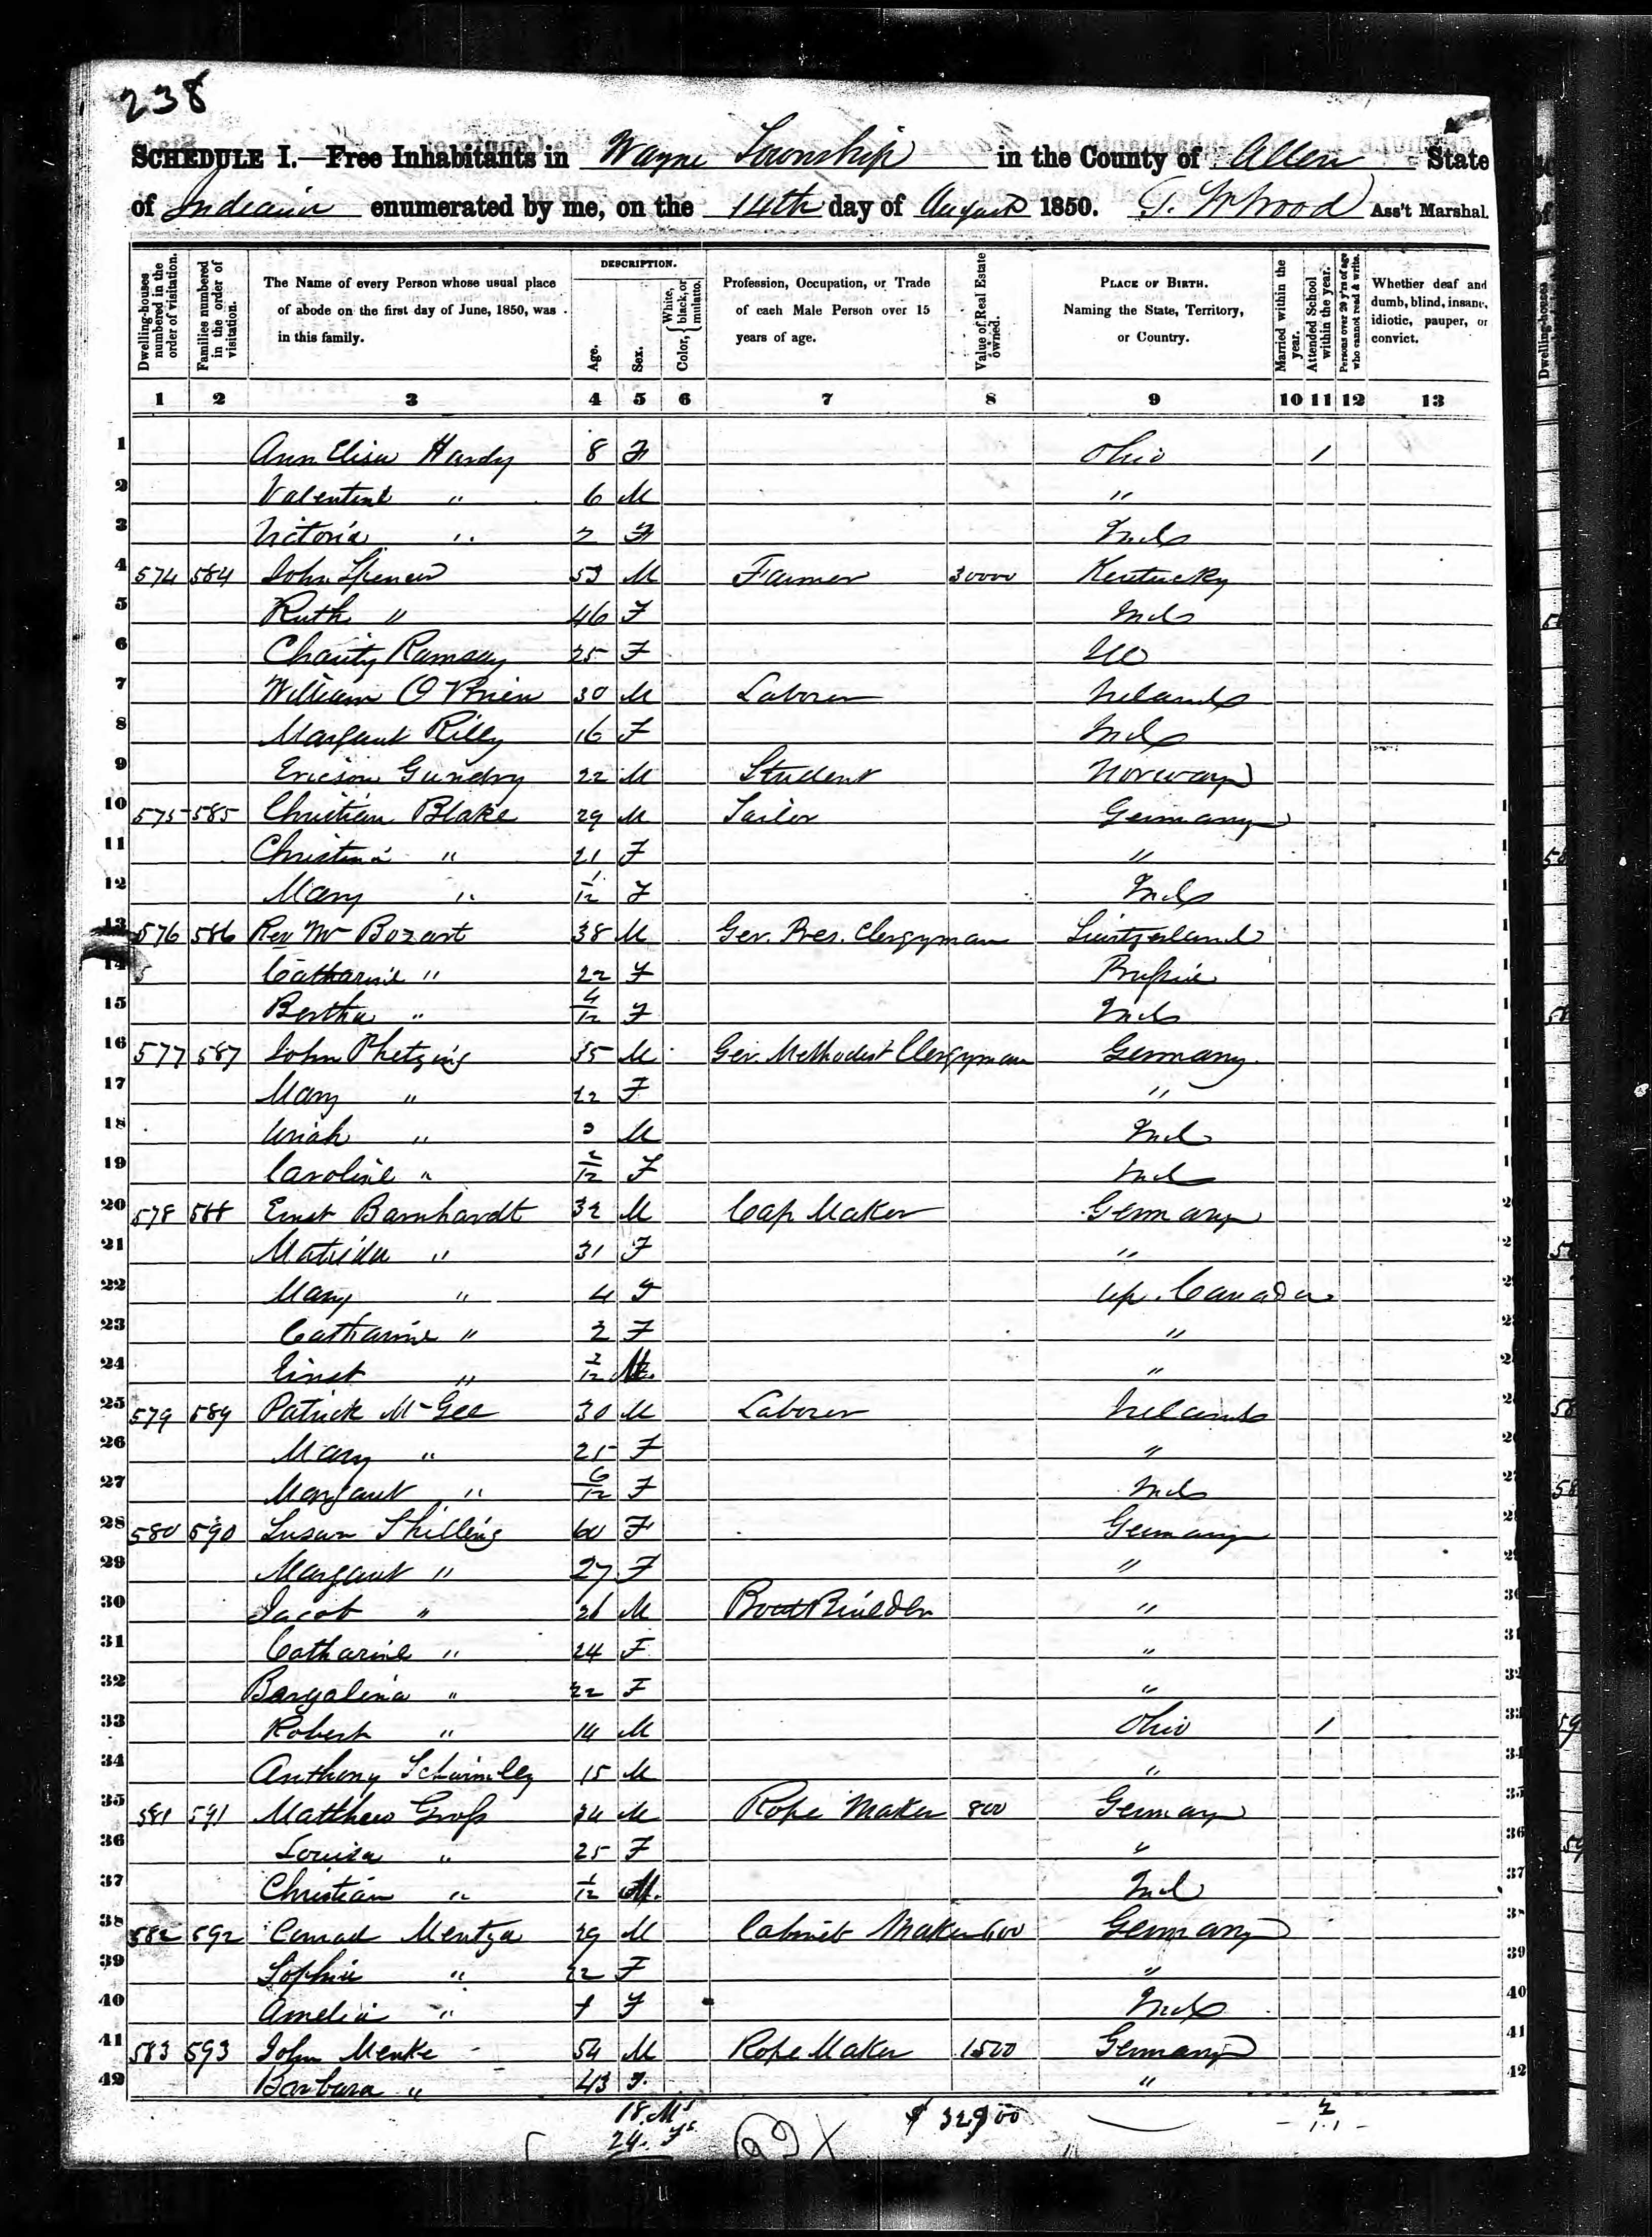 238
SCHEDULE I.—Free Inhabitants in Wayne Township in the County of Allen State
of Indiana enumerated by me, on the 14th day of August 1850. Wood Ass't Marshal.
Dwelling-houses numbered in the order of visitation.
Families numbered in the order of visitation.
The Name of every Person whose usual place of abode on the first day of June, 1850, was in this family.
DESCRIPTION.
Age.
Sex.
Color, { White, black, or mulatto.
Profession, Occupation, or Trade of each Male Person over 15 years of age.
Value of Real Estate owned.
PLACE OF BIRTH. Naming the State, Territory, or Country.
Married within the year.
Attended School within the year.
Persons over 20 y'rs of age who cannot read & write.
Whether deaf and dumb, blind, insane, idiotic, pauper, or convict.
1 2 3 4 5 6 7 8 9 10 11 12 13
1 Ann Elisa Hardy 8 F Ohio 1
2 Valentine " 6 M "
3 Victoria " 2 F Ind
4 574 584 John Spencer 53 M Farmer 30000 Kentucky
5 Ruth " 46 F Ind
6 Charity Ramsay 25 F
7 William O'Brien 30 M Laborer Ireland
8 Margaret Rilly 16 F Ind
9 Ericson Gundry 22 M Student Norway
10 575 585 Christian Blake 29 M Tailor Germany
11 Christina " 21 F "
12 Mary " 1/12 F Ind
13 576 586 Rev Mr Bozart 38 M Ger. Pres. Clergyman Switzerland
14 Catharine " 22 F Prussia
15 Bertha " 4/12 F Ind
16 577 587 John Phetzing 35 M Ger. Methodist Clergyman Germany
17 Mary " 22 F "
18 Uriah " M Ind
19 Caroline " 2/12 F Ind
20 578 588 Ernst Barnhardt 32 M Cap Maker Germany
21 Matilda " 31 F "
22 Mary " 4 F Up. Canada
23 Catharine " 2 F "
24 Ernst " 2/12 M "
25 579 589 Patrick McGee 30 M Laborer Ireland
26 Mary " 25 F "
27 Margaret " 6/12 F Ind
28 580 590 Susan Shilling 60 F Germany
29 Margaret " 27 F "
30 Jacob " 26 M Boat Builder "
31 Catharine " 24 F "
32 Bargalina " 22 F "
33 Robert " 14 M Ohio 1
34 Anthony 15 M "
35 581 591 Matthew Gross 34 M Rope Maker 800 Germany
36 Louisa " 25 F "
37 Christian " 1/12 M. Ind
38 582 592 Conrad Mentza 29 M Cabinet Maker 600 Germany
39 Sophia " 22 F "
40 Amelia " 1 F Ind
41 583 593 John Menke 54 M Rope Maker 1500 Germany
42 Barbara " 43 F. "
18. Ms $ 32900 2
24. Fs